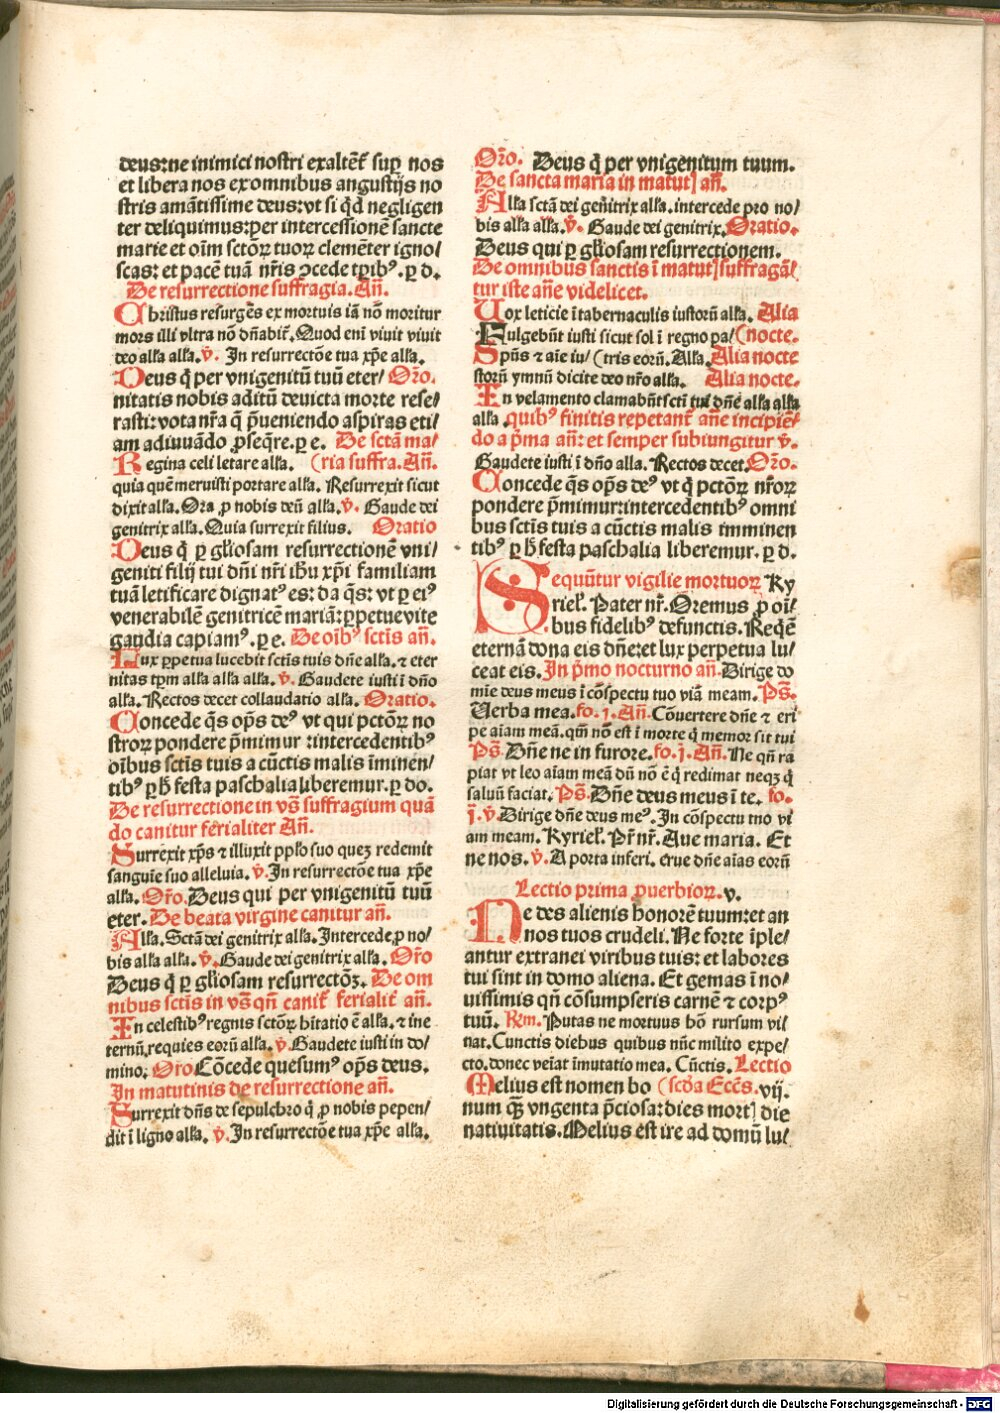 deus:ne inimici nostri exaltēt᷑ sup̱ nos
et libera nos ex omnibus angustijs no
stris amātissime deus:vt si qͥd negligen
ter deliquimus:per intercessionē sancte
marie et oīm sctōꝝ tuoꝝ clemēter igno/
scas: et pacē tuā nr̄is ꝯcede tꝑibꝰ. ꝑ d.
De resurrectione suffragia. Añ.
Christus resurgēs ex mortuis iā nō moritur
mors illi vltra nō dñabit᷑. Quod eni viuit viuit
deo alła alła. ꝟ. In resurrectōe tua xp̄e alła.
Deus q̇ per vnigenitū tuū eter/ Or̄o.
nitatis nobis aditū deuicta morte rese/
rasti: vota nr̄a q̄ p̄ueniendo aspiras eti/
am adiuuādo ꝓseq̄re. ꝑ e. De sctā ma/
Regina celi letare alła. (ria suffra. Añ.
quia quē meruisti portare alła. Resurrexit sicut
dixit alła. Ora ꝓ nobis deū alła. ꝟ. Gaude dei
genitrix alła. Quia surrexit filius. Oratio
Deus q̇ ꝑ gl̄iosam resurrectionē vni/
geniti filij tui dñi nr̄i ih̄u xp̄i familiam
tuā letificare dignatꝰ es: da q̄s: vt ꝑ eiꝰ
venerabilē genitricē mariā: ꝑpetue vite
gaudia capiamꝰ. ꝑ e. De oībꝰ sctīs añ.
Lux ꝑpetua lucebit sctīs tuis dñe alła. ⁊ eter
nitas tꝑm alła alła alła. ꝟ. Gaudete iusti ī dño
alła. Rectos decet collaudatio alła. Oratio.
Concede q̄s op̄s deꝰ vt qui pctōꝝ no
stroꝝ pondere p̄mimur :intercedentibꝰ
oībus sctīs tuis a cūctis malis īminen/
tibꝰ ꝑ h̄ festa paschalia liberemur. ꝑ do.
De resurrectione in vs̄ suffragium quā
do canitur ferialiter Añ.
Surrexit xp̄s ⁊ illuxit pp̄lo suo queꝫ redemit
sanguīe suo alleluia. ꝟ. In resurrectōe tua xp̄e
alła. Or̄o. Deus qui per vnigenitū tuū
eter. De beata virgine canitur añ.
Alła. Sctā dei genitrix alła. Intercede ꝓ no/
bis alła alła. ꝟ. Gaude dei genitrix alła. Or̄o
Deus q̇ ꝑ gl̄iosam resurrectōꝫ. De om
nibus sctīs in vs̄ qn̄ canit᷑ ferialit᷑ añ.
In celestibꝰ regnis sctōꝝ hītatio ē alła. ⁊ in e
ternū requies eorū alła. ꝟ. Gaudete iusti in do/
mino. Or̄o Cōcede quesumꝰ op̄s deus.
In matutinis de resurrectione añ.
Surrexit dñs de sepulchro q̇ ꝓ nobis pepen/
dit ī ligno alła. ꝟ. In resurrectōe tua xp̄e alła.
Or̄o. Deus q̇ per vnigenitum tuum.
De sancta maria in matutꝭ añ.
Alła sctā dei genitrix alła. intercede pro no/
bis alła alła. ꝟ. Gaude dei genitrix. Oratio.
Deus qui ꝑ gl̄iosam resurrectionem.
De omnibus sanctis ī matutꝭ suffragā/
tur iste añe videlicet.
Vox leticie ī tabernaculis iustorū alła. Alia
Fulgebūt iusti sicut sol ī regno pa/ (nocte.
Sp̄ūs ⁊ aīe iu/ (tris eorū. Alła. Alia nocte
storū ymnū dicite deo nr̄o alła. Alia nocte.
In velamento clamabūt sctī tui dñe alła alła
alła. quibꝰ finitis repetant᷑ añe incipiē/
do a p̄ma añ: et semper subiungitur ꝟ.
Gaudete iusti ī dño alla. Rectos decet. Or̄o.
Concede q̄s op̄s deꝰ vt q̇ pctōꝝ nr̄oꝝ
pondere p̄mimur: intercedentibꝰ omni
bus sctīs tuis a cūctis malis imminen
tibꝰ ꝑ h̄ festa paschalia liberemur. ꝑ d.
Sequūtur vigilie mortuoꝝ Ky
rieł. Pater nr̄. Oremus ꝓ oī/
bus fidelibꝰ defunctis. Reqē
eternā dona eis dñe: et lux perpetua lu/
ceat eis. In p̄mo nocturno añ. Dirige do
mīe deus meus ī cōspectu tuo viā meam. Ps̄.
Verba mea. fo. j. Añ. Cōuertere dñe ⁊ eri
pe aīam meā. qm̄ nō est ī morte q̇ memor sit tui
Ps̄. Dñe ne in furore. fo. j. Añ. Ne qn̄ ra
piat vt leo aīam meā dū nō ē q̇ redimat neqꝫ q̇
saluū faciat. Ps̄. Dñe deus meus ī te. fo.
j. ꝟ. Dirige dñe deus meꝰ. In cōspectu tuo vi
am meam. Kyrieł. Pr̄ nr̄. Aue maria. Et
ne nos. ꝟ. A porta inferi. erue dñe aīas eorū
Lectio prima ꝓuerbioꝝ. v.
Ne des alienis honorē tuum: et an
nos tuos crudeli. Ne forte īple/
antur extranei viribus tuis: et labores
tui sint in domo aliena. Et gemas ī no/
uissimis qn̄ cōsumpseris carnē ⁊ corpꝰ
tuū. Rm̄. Putas ne mortuus hō rursum vi/
uat. Cunctis diebus quibus nūc milito expe/
cto. donec veīat īmutatio mea. Cūctis. Lectio
Melius est nomen bo (scd̄a Ecc̄s. vij.
num q̄ꝫ vngenta p̄ciosa: dies mortꝭ die
natiuitatis. Melius est ire ad domū lu/
Digitalisierung gefördert durch die Deutsche Forschungsgemeinschaft - DFG